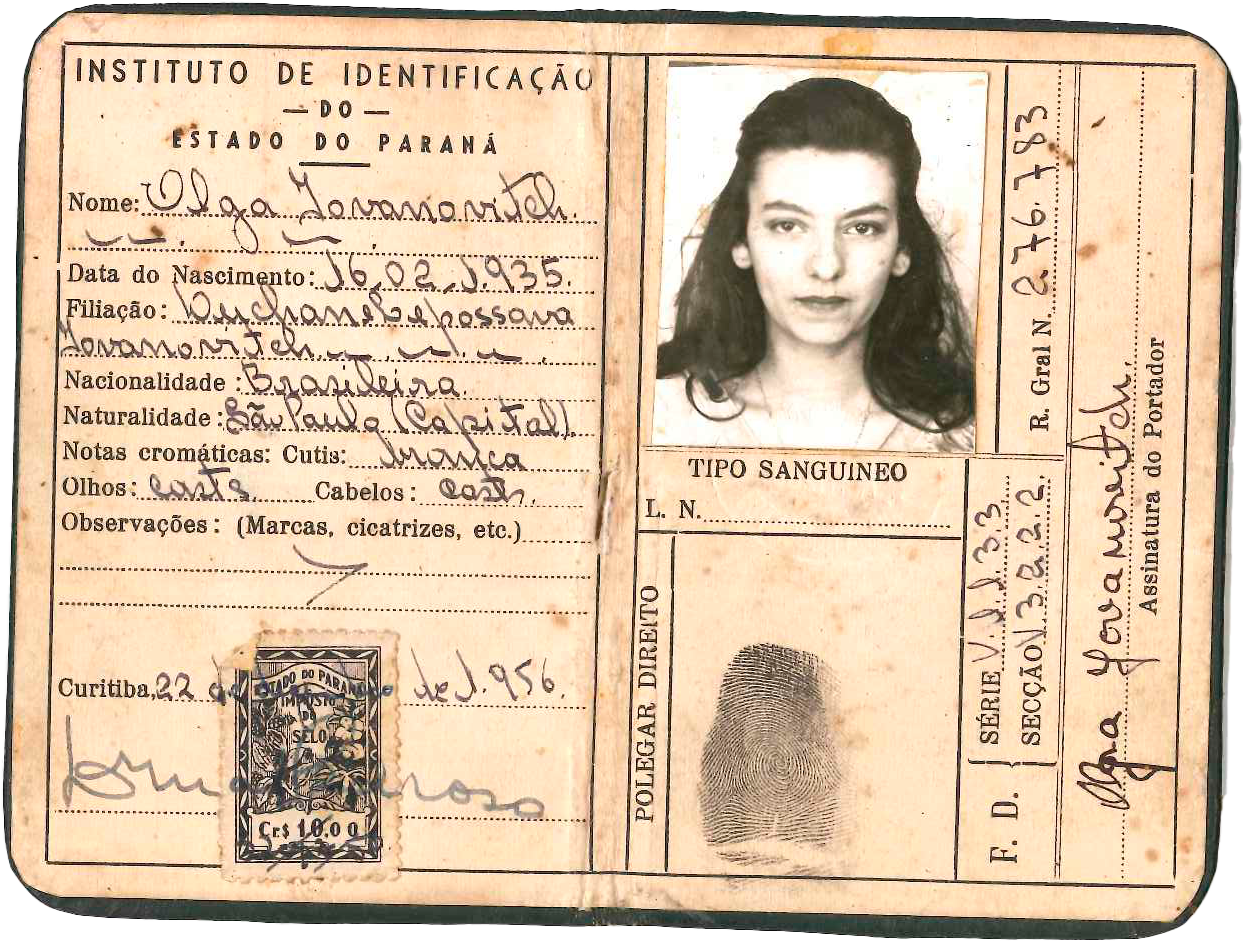 INSTITUTO DE IDENTIFICAÇÃO
— DO —
ESTADO DO PARANÁ
Nome: Olga Jovanovitch.
Data do Nascimento: 16.02.1.935.
Filiação:
Jovanovitch
Nacionalidade: Brasileira.
Naturalidade: São Paulo (Capital).
Notas cromáticas: Cutis: branca
Olhos: casts. Cabelos: casts.
Observações: (Marcas, cicatrizes, etc.)
Curitiba, 22 de de 1.956.
ESTADO DO PARANÁ
IMPOSTO
DO
SELO
Cr$ 10,00
TIPO SANGUINEO
L. N.
POLEGAR DIREITO
R. Gral N. 276.783
F. D.
SÉRIE V.1.1.33
SECÇÃO V.3.2.2.2.
Olga Jovanovitch.
Assinatura do Portador